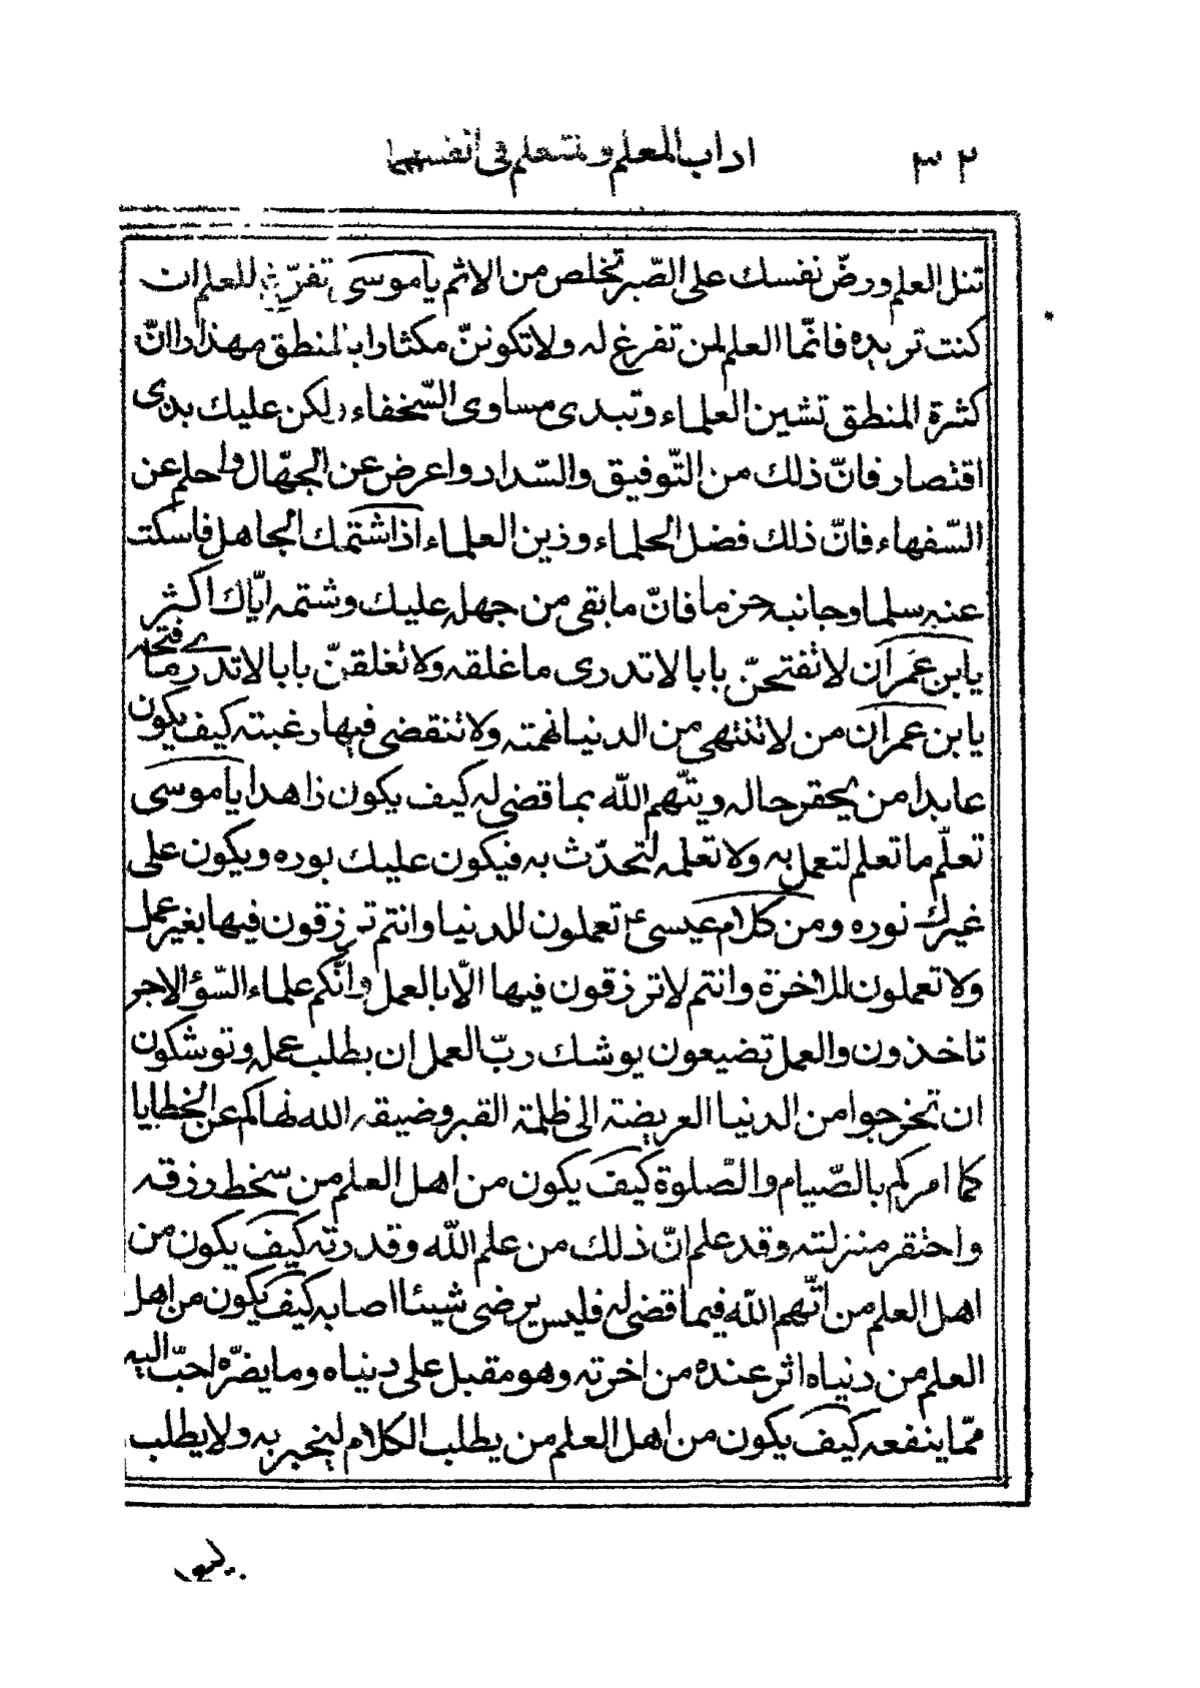 ٣٢ اداب المعلم و متعلم فى انفسهما
تنل العلم ورضّ نفسك على الصّبر تخلص من الاثم ياموسى تفرّغ للعلم ان
كنت تريده فانّما العلم لمن تفرغ له ولا تكوننّ مكثارا بالمنطق مهذارا انّ
كثرة المنطق تشين العلماء وتبدى مساوى السّخفاء ولكن عليك بذى
اقتصار فانّ ذلك من التّوفيق والسّداد واعرض عن الجهّال واحلم عن
السّفهاء فانّ ذلك فضل الحلماء وزين العلماء اذا شتمك الجاهل فاسكت
عنه سلما وجانبه حزما فانّ ما بقى من جهله عليك وشتمه ايّاك اكثر
يابن عمران لا تفتحنّ بابا لا تدرى ما غلقه ولا تغلقنّ بابا لا تدرى ما فتحه
يابن عمران من لا تنتهى من الدنيا نهمته ولا تنقضى فيها رغبته كيف يكون
عابدا من يحقر حاله ويتّهم الله بما قضى له كيف يكون زاهدا ياموسى
تعلّم ما تعلم لتعمل به ولا تعلمه لتحدّث به فيكون عليك بوره ويكون على
غيرك نوره ومن كلام عيسى ع تعملون للدنيا وانتم ترزقون فيها بغير عمل
ولا تعملون للاخرة وانتم لا ترزقون فيها الّا بالعمل وانّكم علماء السّؤ الاجر
تاخذون والعمل تضيعون يوشك ربّ العمل ان يطلب عمله وتوشكون
ان تخرجوا من الدنيا العريضة الى ظلمة القبر وضيقه الله نهاكم عن الخطايا
كما امركم بالصّيام والصّلوة كيف يكون من اهل العلم من سخط رزقه
واحتقر منزلته وقد علم انّ ذلك من علم الله وقدرته كيف يكون من
اهل العلم من اتّهم الله فيما قضى له فليس يرضى شيئا اصابه كيف يكون من اهل
العلم من دنياه اثر عنده من اخرته وهو مقبل على دنياه وما يضرّه احبّ اليه
ممّا ينفعه كيف يكون من اهل العلم من يطلب الكلام ليخبر به ولا يطلب